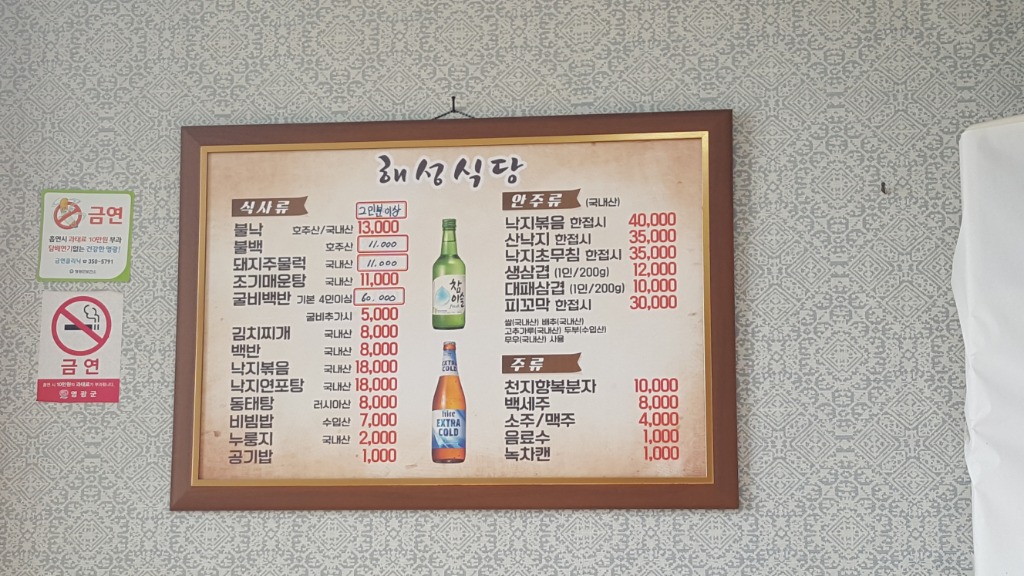 해성식당
식사류
2인분이상
불낙 호주산/국내산 13,000
불백 호주산 11.000
돼지주물럭 국내산 11.000
조기매운탕 국내산 11,000
굴비백반 기본 4인이상 60.000
굴비추가시 5,000
김치찌개 국내산 8,000
백반 국내산 8,000
낙지볶음 국내산 18,000
낙지연포탕 국내산 18,000
동태탕 러시아산 8,000
비빔밥 수입산 7,000
누룽지 국내산 2,000
공기밥 1,000
안주류 (국내산)
낙지볶음 한접시 40,000
산낙지 한접시 35,000
낙지초무침 한접시 35,000
생삼겹 (1인/200g) 12,000
대패삼겹 (1인/200g) 10,000
피꼬막 한접시 30,000
쌀(국내산) 배추(국내산)
고추가루(국내산) 두부(수입산)
무우(국내산) 사용
주류
천지향복분자 10,000
백세주 8,000
소주/맥주 4,000
음료수 1,000
녹차캔 1,000
참이슬
EXTRA
COLD
hite
EXTRA
COLD
금연
흡연시 과태료 10만원 부과
담배연기없는 건강한 영광!
금연클리닉 ☎ 350-5791
영광군보건소
금연
흡연 시 10만원의 과태료가 부과됩니다.
영광군